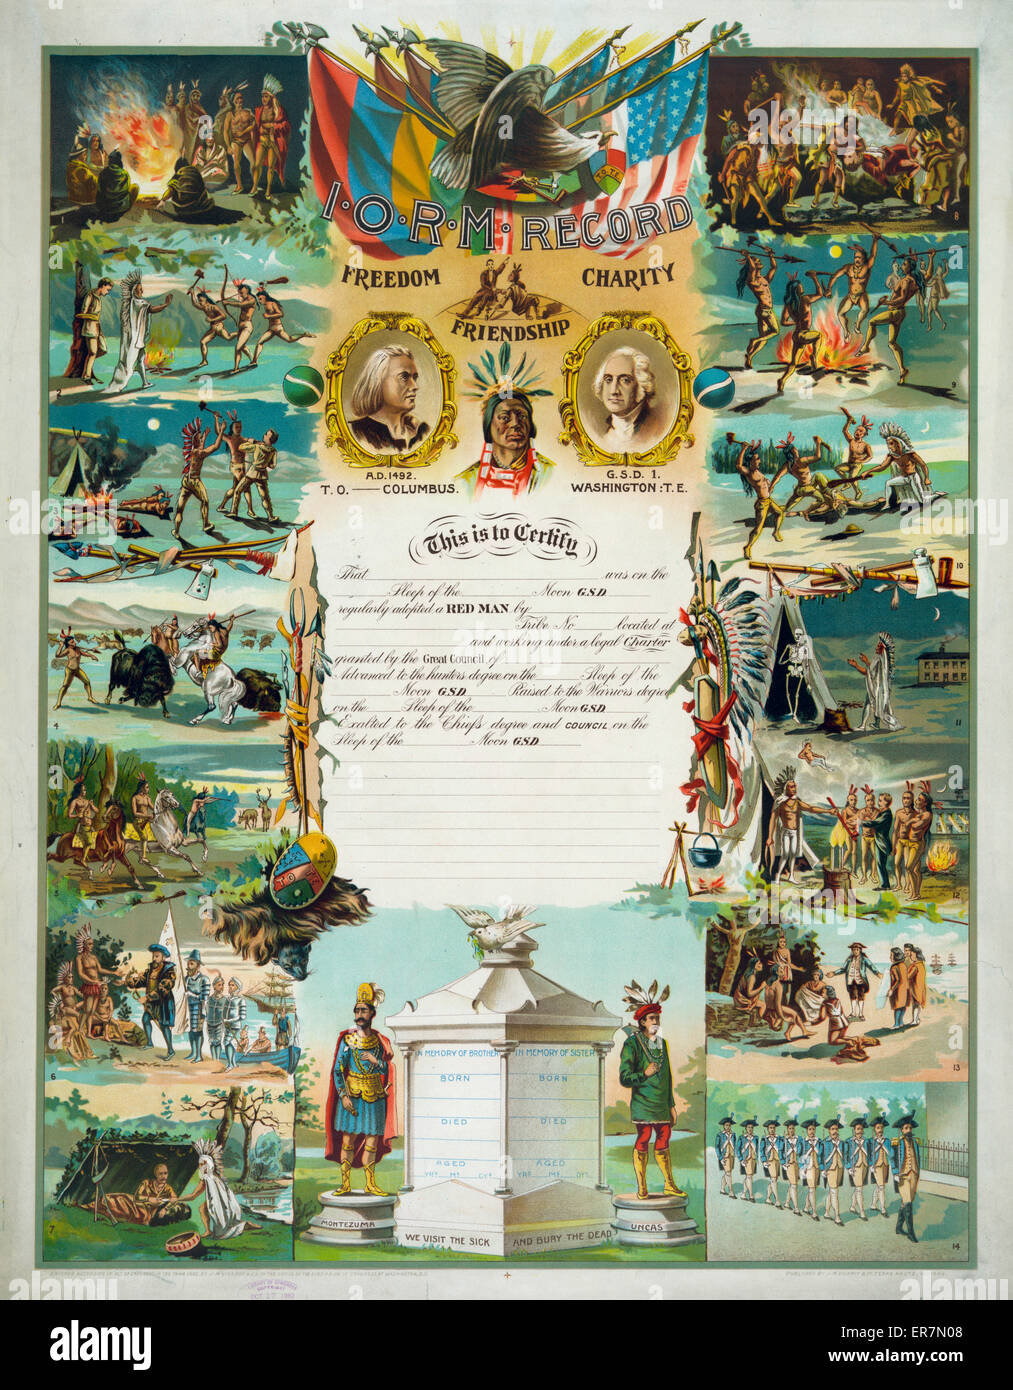 I·O·R·M· RECORD
FREEDOM CHARITY
FRIENDSHIP
A.D. 1492. G.S.D. 1.
T.O. — COLUMBUS. WASHINGTON: T.E.
This is to Certify
That was on the
Sleep of the Moon G.S.D
regularly adopted a RED MAN by
Tribe No located at
and working under a legal Charter
granted by the Great Council of
Advanced to the hunters degree on the Sleep of the
Moon G.S.D Raised to the Warriors degree
on the Sleep of the Moon G.S.D
Exalted to the Chiefs degree and COUNCIL on the
Sleep of the Moon G.S.D
IN MEMORY OF BROTHER IN MEMORY OF SISTER
BORN BORN
DIED DIED
AGED AGED
YRS. MS. DYS. YRS. MS. DYS.
MONTEZUMA UNCAS
WE VISIT THE SICK AND BURY THE DEAD
4
6
7
8
9
10
11
12
13
14
OCT 17
alamy
alamy
Image ID: ER7N08
www.alamy.com